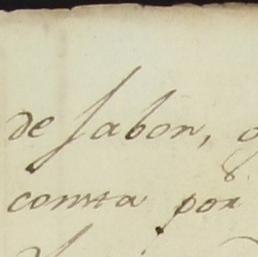 de Jabon,
consta por